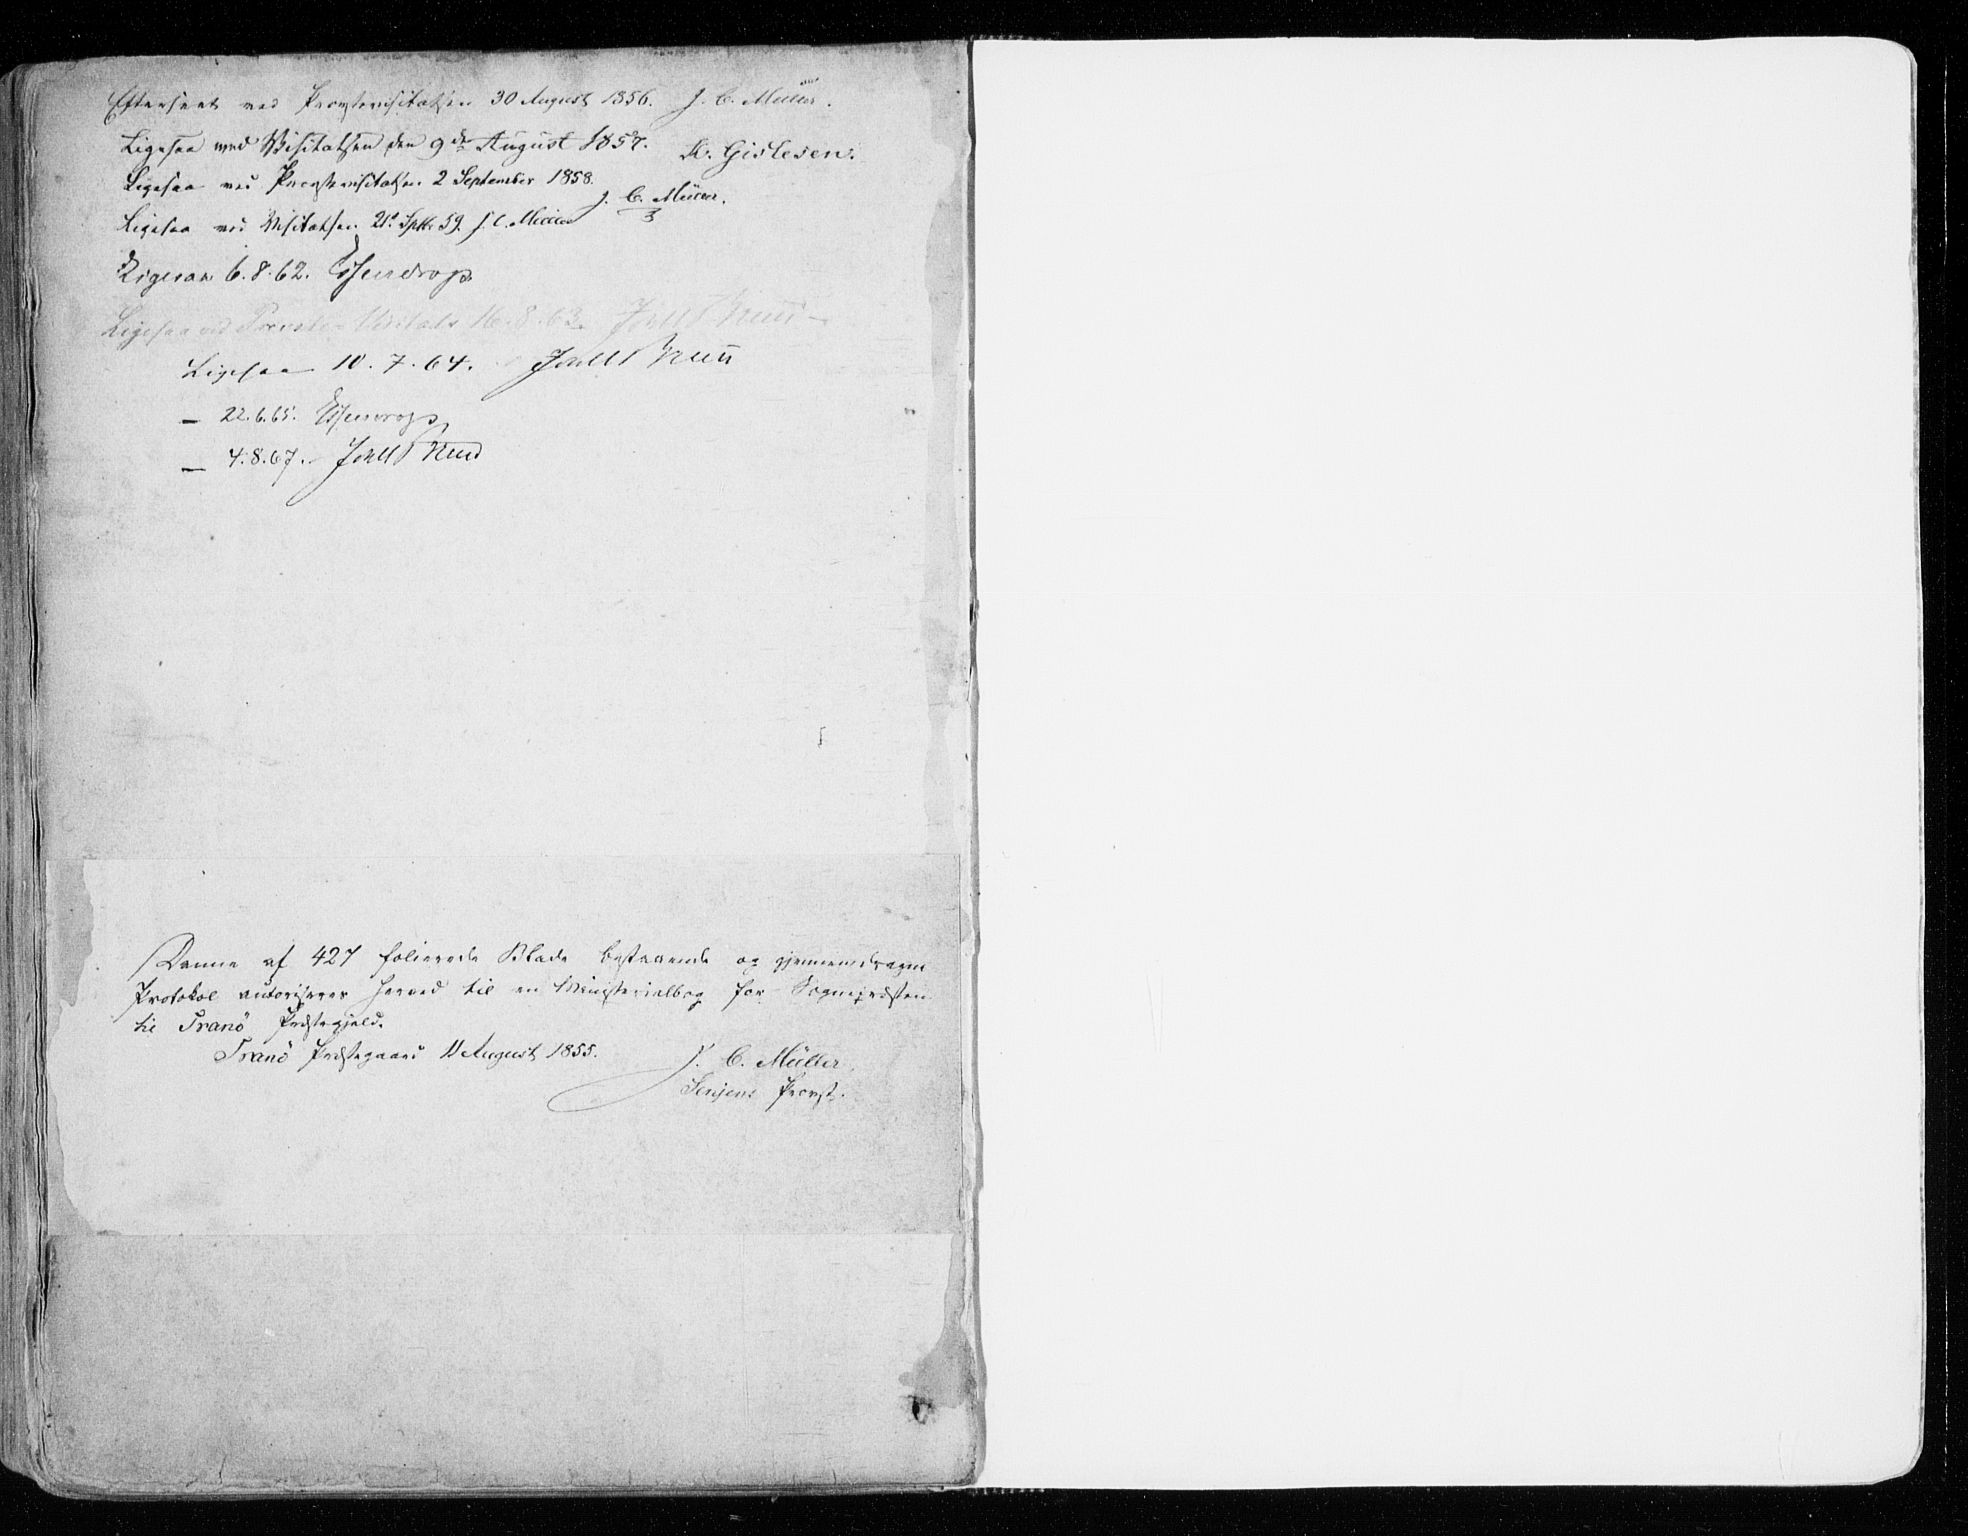 Efterseet ved Provstevisitatsen 30 August 1856. J. C. Müller.
Ligesaa ved Visitatsen den 9de August 1857. K. Gislesen.
Ligesaa ved Provstevisitatsen 2 September 1858. J. C. Müller.
Ligesaa ved Visitatsen 21 Sptbr 59. J. C. Müller
Ligesaa 6.8.62. Essendrop
Ligesaa ved Provste-Visitats 16.8.63.
Ligesaa 10.7.64.
— 22.6.65. Essendrop
— 4.8.67.
Denne af 427 folierede Blade bestaaende og gjennemdragne
Protokol autoriseres herved til en Ministerialbog for Sognepræsten
til Tranö Præstegjeld.
Tranö Præstegaard 11 August 1855. J. C. Müller
Senjens Provst.